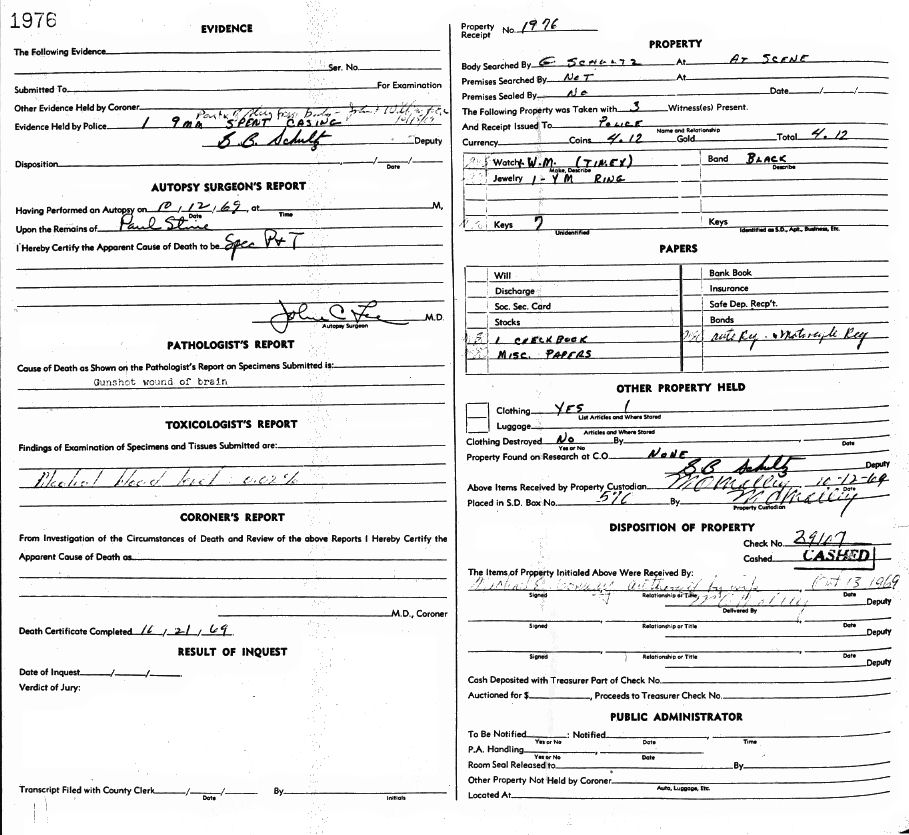 1976
EVIDENCE
The Following Evidence
Ser. No.
Submitted To For Examination
Other Evidence Held by Coroner
Evidence Held by Police 1 9mm SPENT CASING
S.B. Schultz Deputy
Disposition / /
Date
AUTOPSY SURGEON'S REPORT
Having Performed an Autopsy on 10, 12, 69, at M,
Date Time
Upon the Remains of Paul Stine
I Hereby Certify the Apparent Cause of Death to be Spec P+T
John C Lee M.D.
Autopsy Surgeon
PATHOLOGIST'S REPORT
Cause of Death as Shown on the Pathologist's Report on Specimens Submitted is:
Gunshot wound of brain
TOXICOLOGIST'S REPORT
Findings of Examination of Specimens and Tissues Submitted are:
Alcohol blood level 0.02%
CORONER'S REPORT
From Investigation of the Circumstances of Death and Review of the above Reports I Hereby Certify the
Apparent Cause of Death as
M.D., Coroner
Death Certificate Completed / 21 / 69
RESULT OF INQUEST
Date of Inquest / /
Verdict of Jury:
Transcript Filed with County Clerk / / By
Date Initials
Property
Receipt No. 1976
PROPERTY
Body Searched By G SCHULTZ At AT SCENE
Premises Searched By NOT At
Premises Sealed By NO Date / /
The Following Property was Taken with 3 Witness(es) Present.
And Receipt Issued To POLICE
Name and Relationship
Currency Coins 4.12 Gold Total 4.12
Watch W.M. (TIMEX) Band BLACK
Make, Describe Describe
Jewelry 1 - YM RING
Keys 7 Keys
Unidentified Identified as S.D., Apt., Business, Etc.
PAPERS
Will Bank Book
Discharge Insurance
Soc. Sec. Card Safe Dep. Recp't.
Stocks Bonds
1 CHECKBOOK auto Reg. & Motorcycle Reg
MISC. PAPERS
OTHER PROPERTY HELD
Clothing YES 1
List Articles and Where Stored
Luggage
Articles and Where Stored
Clothing Destroyed NO By
Yes or No Date
Property Found on Research at C.O. NONE
S.B. Schultz Deputy
Above Items Received by Property Custodian McOmalley 10-12-69
Date
Placed in S.D. Box No. 576 By McOmalley
Property Custodian
DISPOSITION OF PROPERTY
Check No. 29107
Cashed CASHED
The Items of Property Initialed Above Were Received By:
authorized by wife Oct 13 1969
Signed Relationship or Title Date
Deputy
Delivered By
Signed Relationship or Title Date
Deputy
Signed Relationship or Title Date
Deputy
Cash Deposited with Treasurer Part of Check No.
Auctioned for $ , Proceeds to Treasurer Check No.
PUBLIC ADMINISTRATOR
To Be Notified : Notified
Yes or No Date Time
P.A. Handling
Yes or No Date
Room Seal Released to By
Other Property Not Held by Coroner
Auto, Luggage, Etc.
Located At